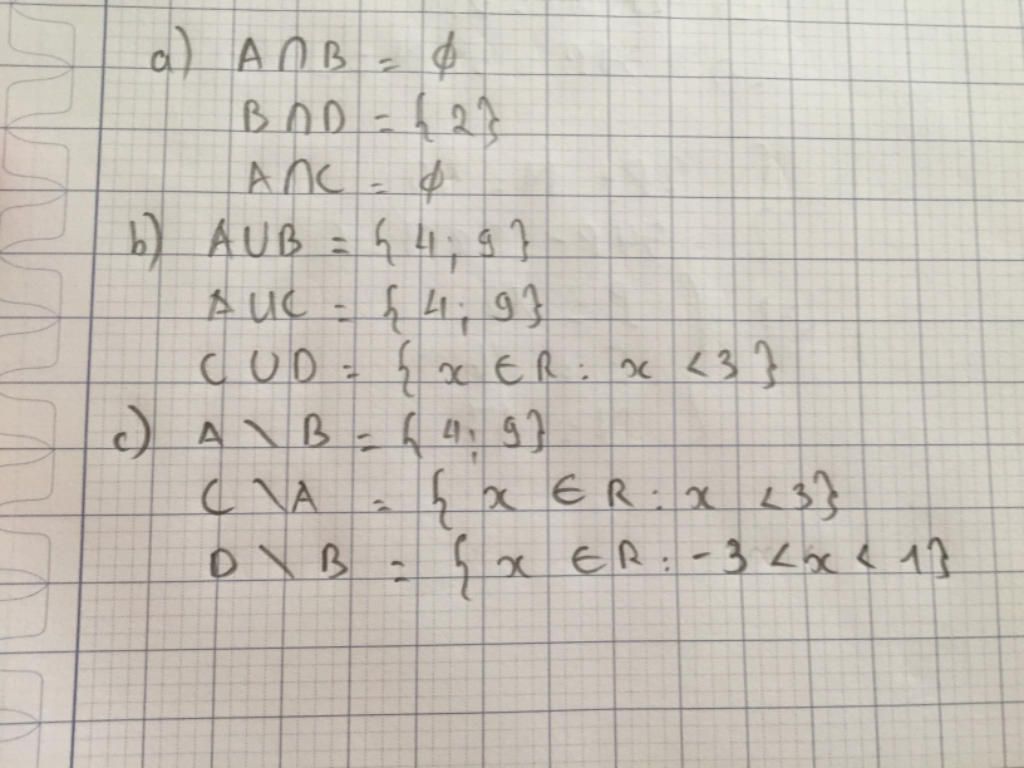 a) A∩B = ϕ
B∩D = {2}
A∩C = ϕ
b) A∪B = {4; 9}
A∪C = {4; 9}
C∪D = {x ∈ R : x < 3}
c) A \ B = {4; 9}
C \ A = {x ∈ R : x < 3}
D \ B = {x ∈ R : -3 < x < 1}